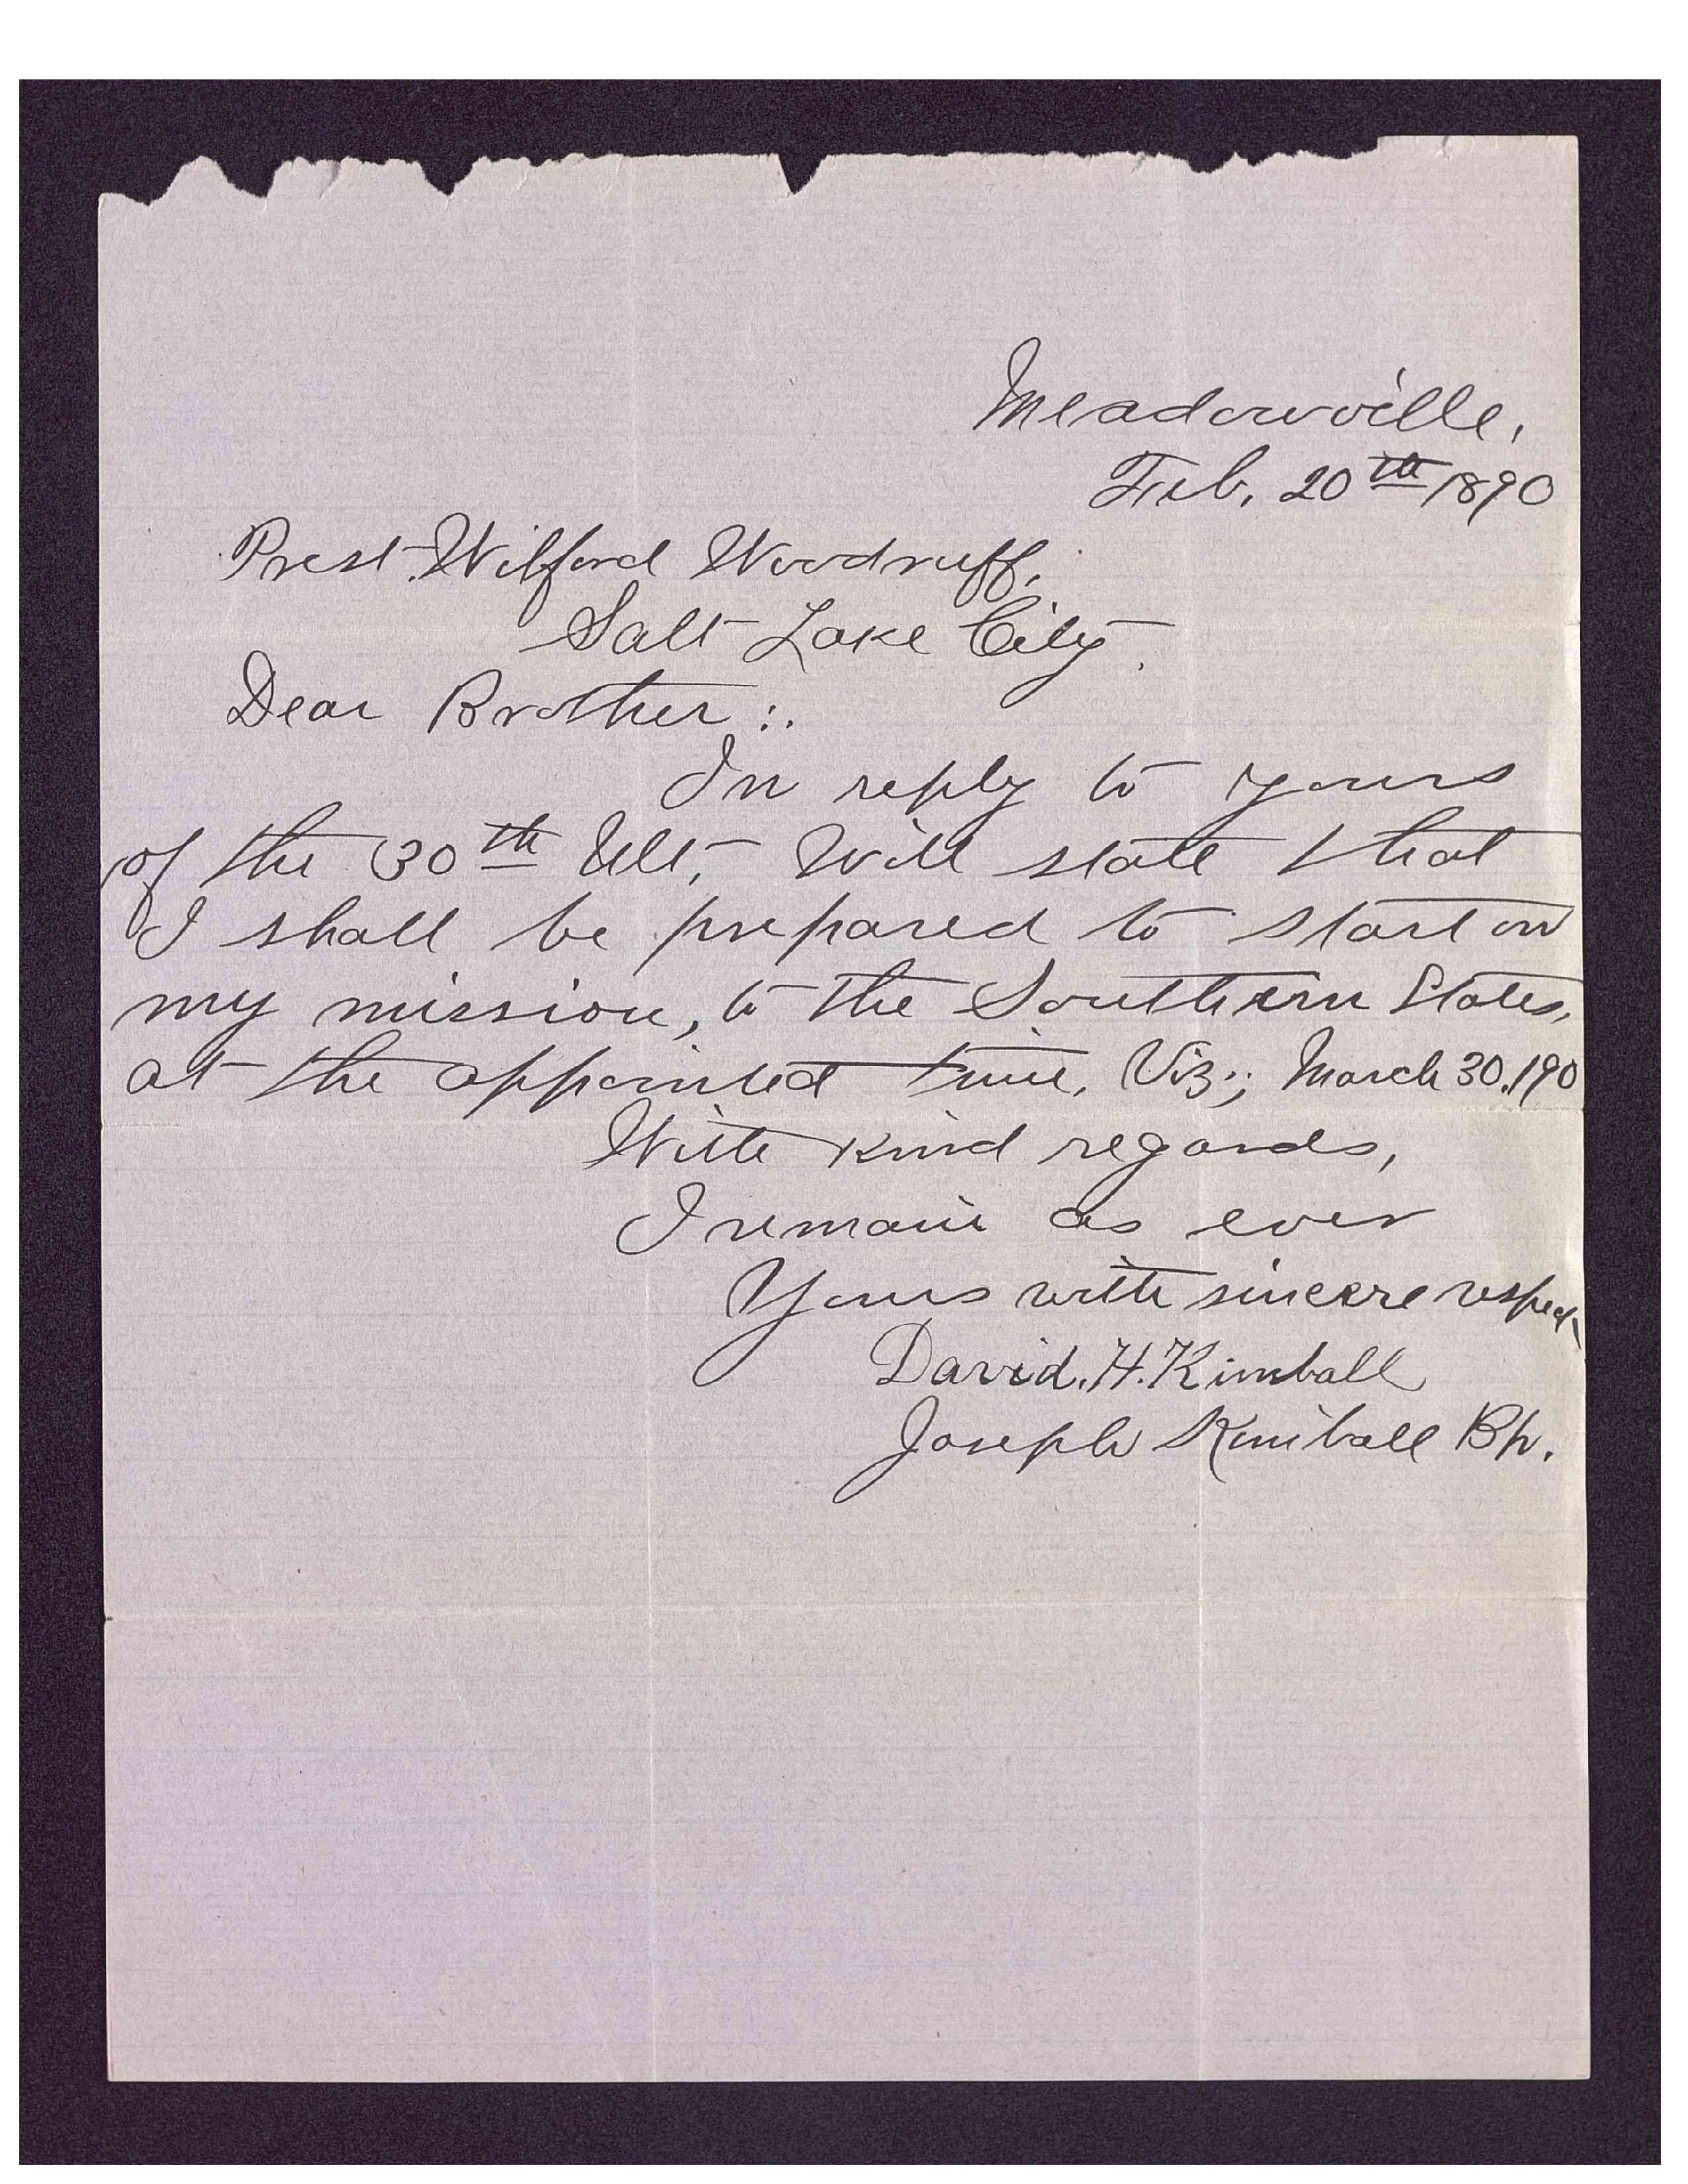 Meadowville,
Feb. 20th 1890
Prest. Wilford Woodruff,
Salt Lake City.
Dear Brother:.
In reply to yours
of the 30th Ult, Will state that
I shall be prepared to start on
my mission, to the Southern States,
at the appointed time, Viz; March 30. 190
With kind regards,
I remain as ever
Yours with sincere respect
David. H. Kimball
Joseph Kimball Bp.